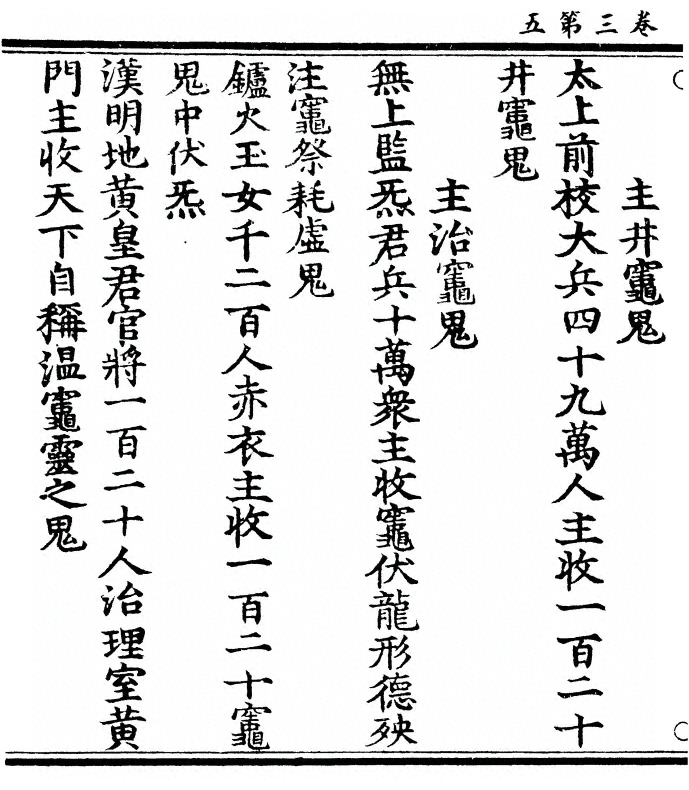 卷三第五
主井竈鬼
太上前校大兵四十九萬人主收一百二十
井竈鬼
主治竈鬼
無上監炁君兵十萬衆主收竈伏龍形德殃
注竈祭耗虛鬼
鑪火玉女千二百人赤衣主收一百二十竈
鬼中伏炁
漢明地黃皇君官將一百二十人治理室黃
門主收天下自稱温竈靈之鬼